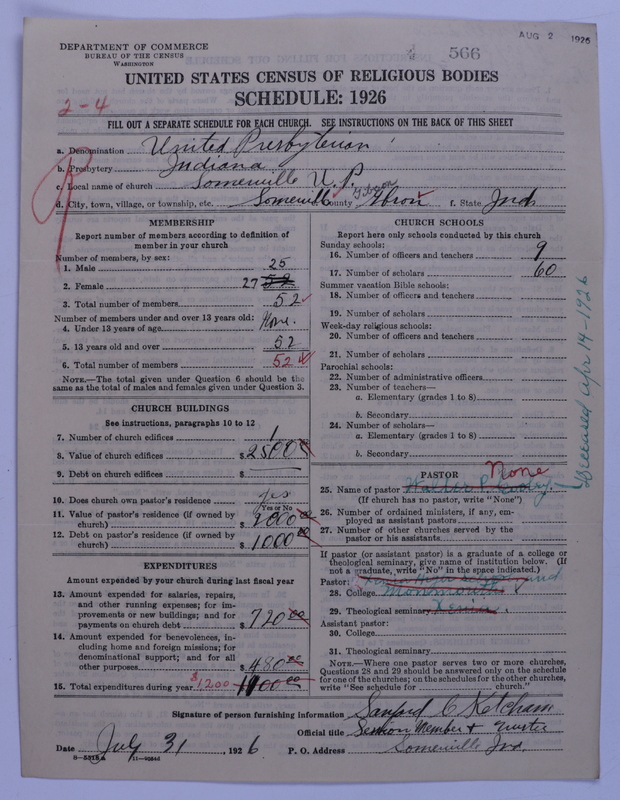 AUG 2 1926
566
DEPARTMENT OF COMMERCE
BUREAU OF THE CENSUS
WASHINGTON
UNITED STATES CENSUS OF RELIGIOUS BODIES
SCHEDULE: 1926
2-4
FILL OUT A SEPARATE SCHEDULE FOR EACH CHURCH. SEE INSTRUCTIONS ON THE BACK OF THIS SHEET
a. Denomination United Presbyterian
b. Presbytery Indiana
c. Local name of church Somerville U.P.
d. City, town, village, or township, etc. Somerville County Gibson f. State Ind
MEMBERSHIP
Report number of members according to definition of
member in your church
Number of members, by sex:
1. Male 25
2. Female 27
3. Total number of members 52
Number of members under and over 13 years old:
4. Under 13 years of age None.
5. 13 years old and over 52
6. Total number of members 52
NOTE.—The total given under Question 6 should be the
same as the total of males and females given under Question 3.
CHURCH BUILDINGS
See instructions, paragraphs 10 to 12
7. Number of church edifices 1
8. Value of church edifices $2500 00
9. Debt on church edifices $
10. Does church own pastor's residence yes
Yes or No
11. Value of pastor's residence (if owned by
church) $2000 00
12. Debt on pastor's residence (if owned by
church) $1000 00
EXPENDITURES
Amount expended by your church during last fiscal year
13. Amount expended for salaries, repairs,
and other running expenses; for im-
provements or new buildings; and for
payments on church debt $720 00
14. Amount expended for benevolences, in-
cluding home and foreign missions; for
denominational support; and for all
other purposes $480 00
15. Total expenditures during year $1,200 1100 00
CHURCH SCHOOLS
Report here only schools conducted by this church
Sunday schools:
16. Number of officers and teachers 9
17. Number of scholars 60
Summer vacation Bible schools:
18. Number of officers and teachers
19. Number of scholars
Week-day religious schools:
20. Number of officers and teachers
21. Number of scholars
Parochial schools:
22. Number of administrative officers
23. Number of teachers—
a. Elementary (grades 1 to 8)
b. Secondary
24. Number of scholars—
a. Elementary (grades 1 to 8)
b. Secondary
Deceased Apr 14-1926
PASTOR
None
25. Name of pastor Walter P.
(If church has no pastor, write "None")
26. Number of ordained ministers, if any, em-
ployed as assistant pastors
27. Number of other churches served by the
pastor or his assistants
If pastor (or assistant pastor) is a graduate of a college or
theological seminary, give name of institution below. (If
not a graduate, write "No" in the space indicated.)
Pastor: and
28. College Monmouth
29. Theological seminary Xenia
Assistant pastor:
30. College
31. Theological seminary
NOTE.—Where one pastor serves two or more churches,
Questions 28 and 29 should be answered only on the schedule
for one of the churches; on the schedules for the other churches,
write "See schedule for church."
Signature of person furnishing information Sanford C Ketcham
Official title Session Member & Trustee
Date July 31, 1926 P. O. Address Somerville Ind.